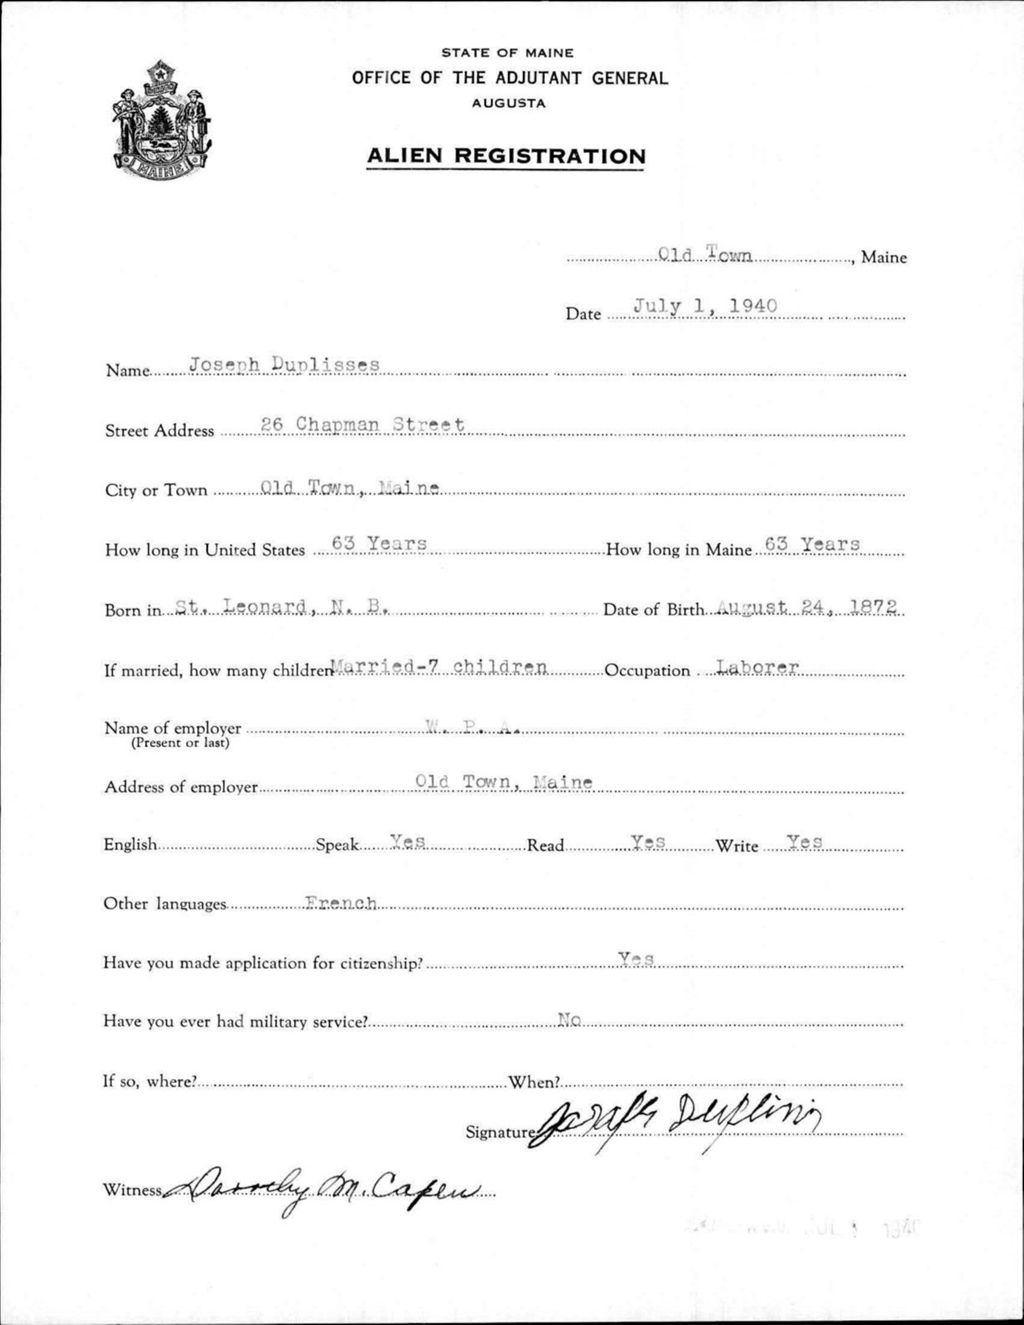 STATE OF MAINE
OFFICE OF THE ADJUTANT GENERAL
AUGUSTA
ALIEN REGISTRATION
MAINE
Old Town, Maine
Date July 1, 1940
Name Joseph Duplisses
Street Address 26 Chapman Street
City or Town Old Town, Maine
How long in United States 63 Years How long in Maine 63 Years
Born in St. Leonard, N. B. Date of Birth August 24, 1872
If married, how many children Married-7 children Occupation Laborer
Name of employer W. P. A.
(Present or last)
Address of employer Old Town, Maine
English Speak Yes Read Yes Write Yes
Other languages French
Have you made application for citizenship? Yes
Have you ever had military service? No
If so, where? When?
Signature
Witness Dorothy M. Capen